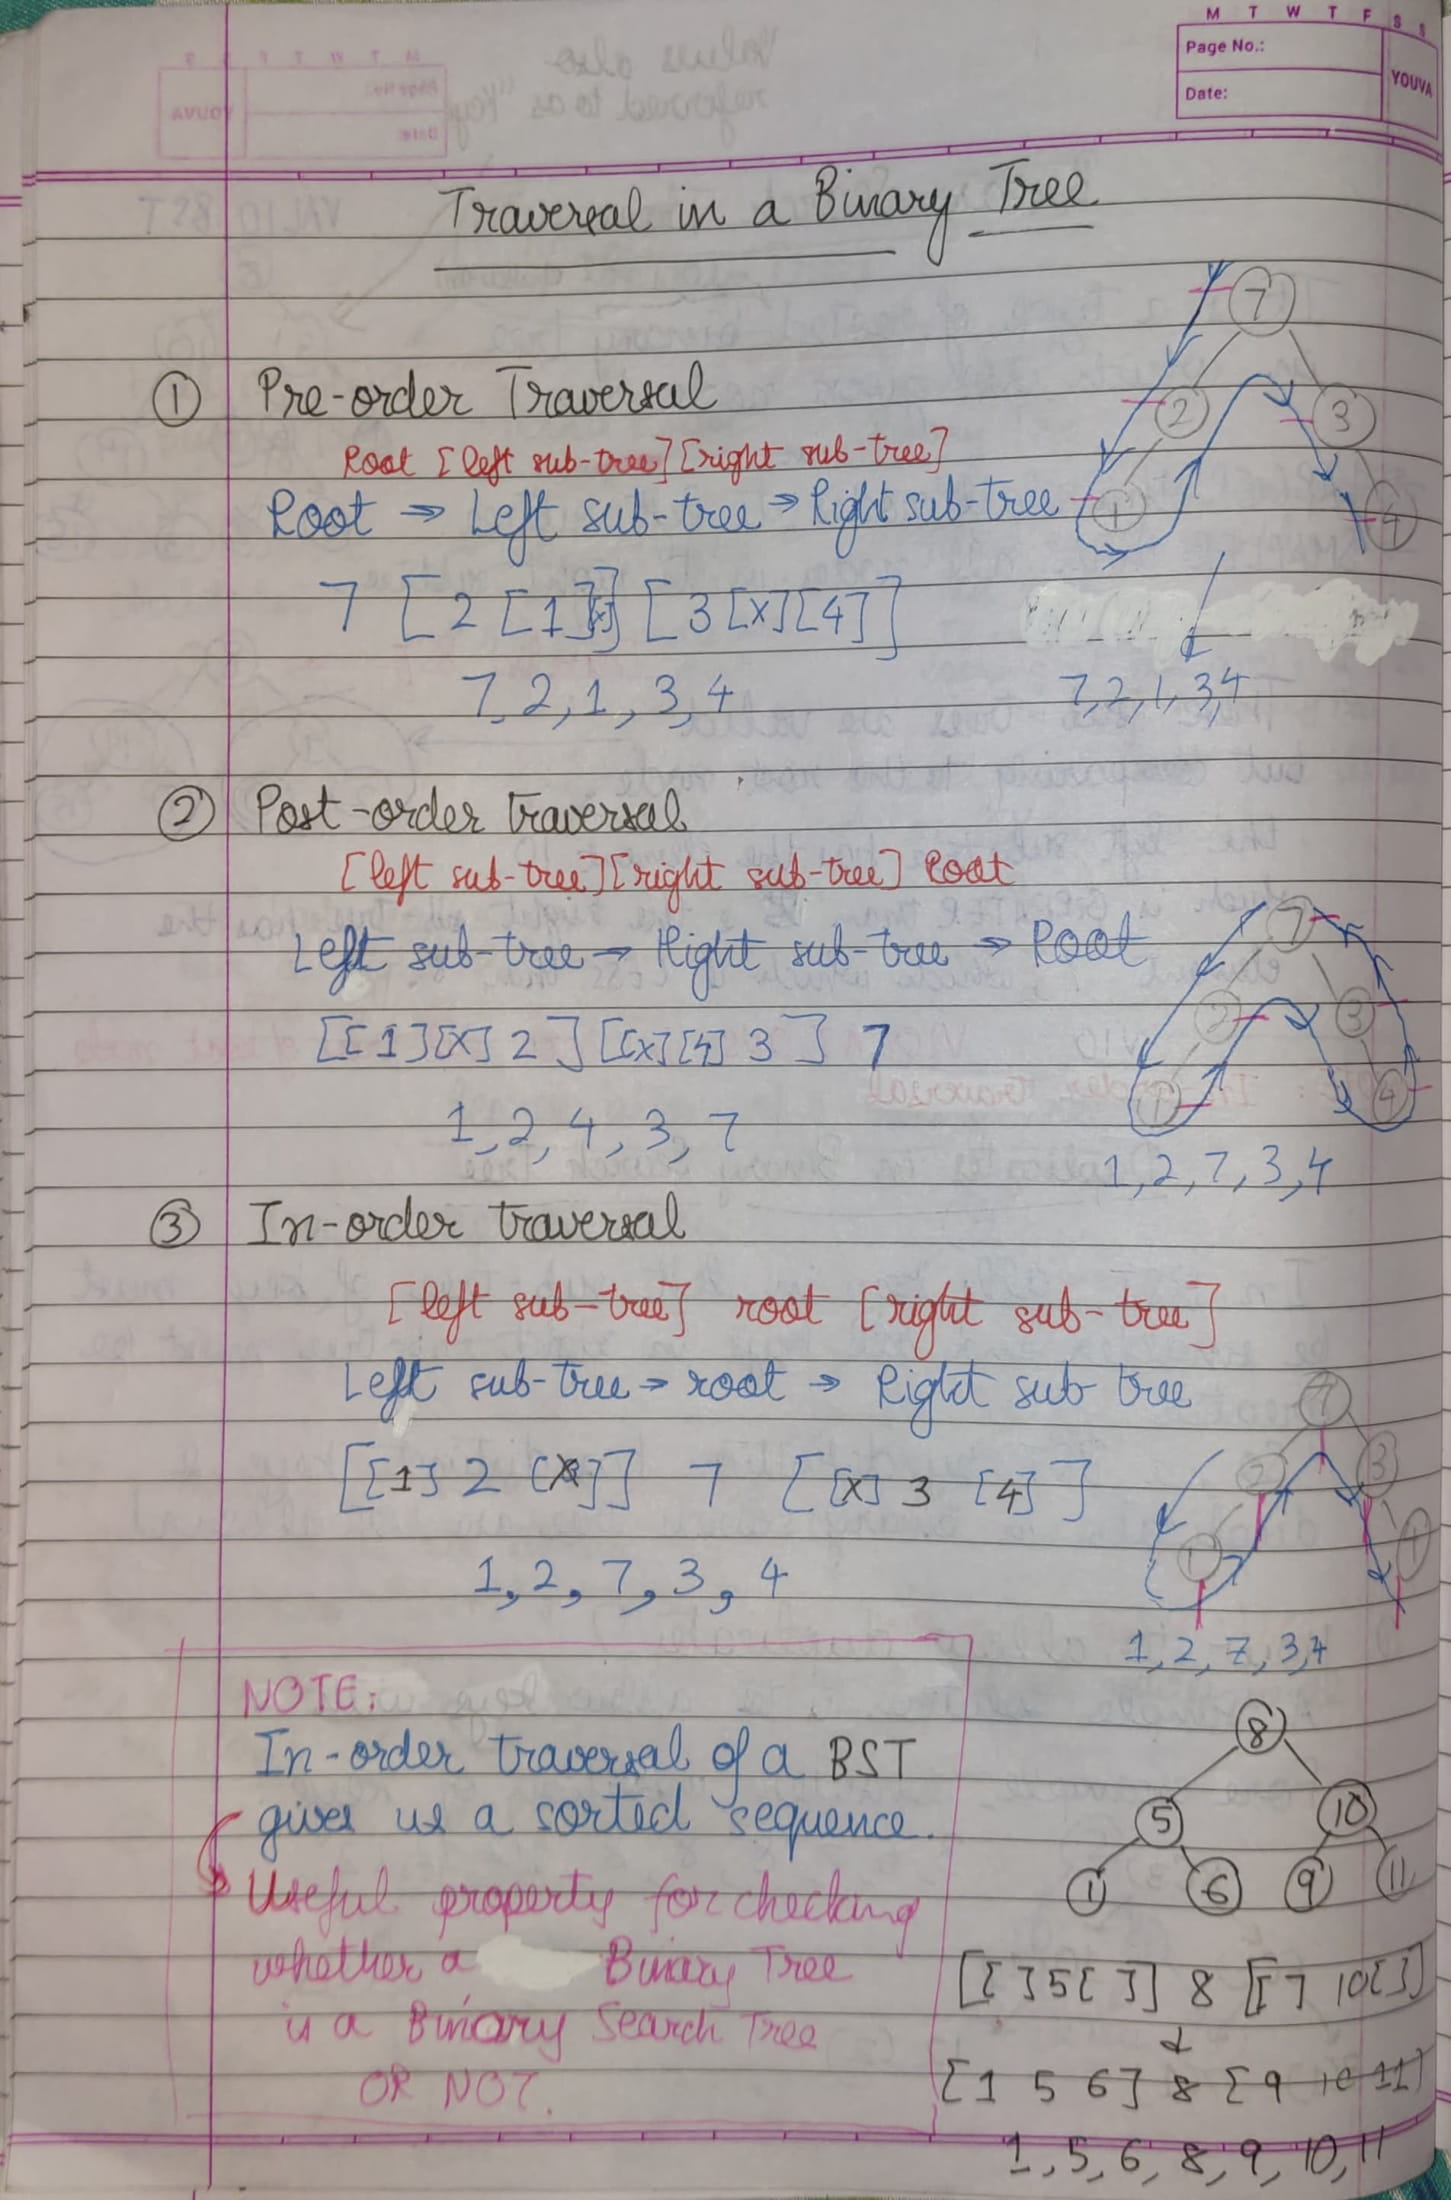 M T W T F S S
Page No.:
Date:
YOUVA
Values also
referred to as "key"
Traversal in a Binary Tree
7
2
3
1
4
① Pre-order Traversal
Root [left sub-tree] [right sub-tree]
Root → Left sub-tree → Right sub-tree
7 [2 [1][x]] [3 [x][4]]
7, 2, 1, 3, 4
7, 2, 1, 3, 4
② Post-order traversal
[left sub-tree] [right sub-tree] Root
Left sub-tree → Right sub-tree → Root
7
2
3
1
4
[[1][x] 2] [[x][4] 3] 7
1, 2, 4, 3, 7
1, 2, 7, 3, 4
③ In-order traversal
[left sub-tree] root [right sub-tree]
Left sub-tree → root → Right sub tree
7
2
3
1
4
[[1] 2 [x]] 7 [[x] 3 [4]]
1, 2, 7, 3, 4
1, 2, 7, 3, 4
NOTE:
In-order traversal of a BST
gives us a sorted sequence.
Useful property for checking
whether a Binary Tree
is a Binary Search Tree
OR NOT.
8
5
10
1
6
9
11
[[ ] 5 [ ]] 8 [[ ] 10 [ ]]
[1 5 6] 8 [9 10 11]
1, 5, 6, 8, 9, 10, 11